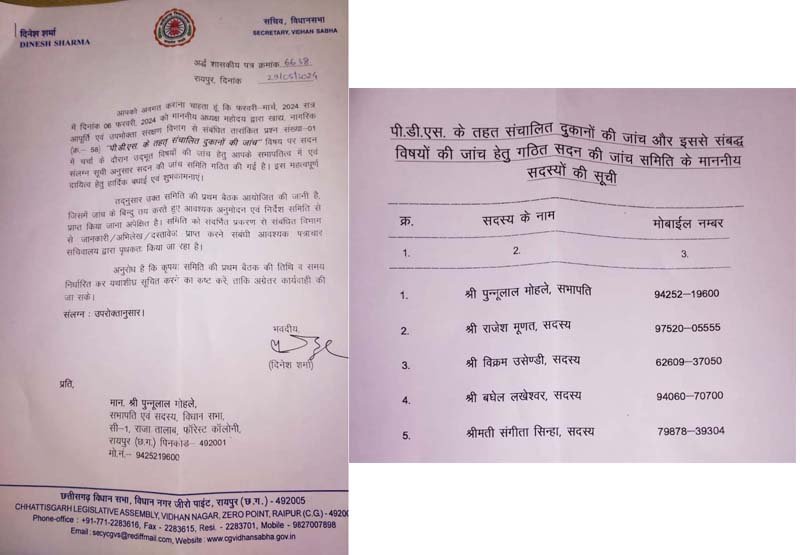 दिनेश शर्मा
DINESH SHARMA
सचिव, विधानसभा
SECRETARY, VIDHAN SABHA
अर्द्ध शासकीय पत्र क्रमांक 6638
रायपुर, दिनांक 29/05/2024
आपको अवगत कराना चाहता हूं कि फरवरी–मार्च, 2024 सत्र
में दिनांक 06 फरवरी, 2024 को माननीय अध्यक्ष महोदय द्वारा खाद्य, नागरिक
आपूर्ति एवं उपभोक्ता संरक्षण विभाग से संबंधित तारांकित प्रश्न संख्या–01
(क्र.– 58) "पी.डी.एस. के तहत् संचालित दुकानों की जांच" विषय पर सदन
में चर्चा के दौरान उद्भूत विषयों की जांच हेतु आपके सभापतित्व में एवं
संलग्न सूची अनुसार सदन की जांच समिति गठित की गई है। इस महत्वपूर्ण
दायित्व हेतु हार्दिक बधाई एवं शुभकामनाएं।
तद्नुसार उक्त समिति की प्रथम बैठक आयोजित की जानी है,
जिसमें जांच के बिन्दु तय करते हुए आवश्यक अनुमोदन एवं निर्देश समिति से
प्राप्त किया जाना अपेक्षित है। समिति को संदर्भित प्रकरण से संबंधित विभाग
से जानकारी/अभिलेख/दस्तावेज प्राप्त करने संबंधी आवश्यक पत्राचार
सचिवालय द्वारा पृथकतः किया जा रहा है।
अनुरोध है कि कृपया समिति की प्रथम बैठक की तिथि व समय
निर्धारित कर यथाशीघ्र सूचित करने का कष्ट करें, ताकि अग्रेतर कार्यवाही की
जा सके।
संलग्न : उपरोक्तानुसार।
भवदीय,
(दिनेश शर्मा)
प्रति,
मान. श्री पुन्नूलाल मोहले,
सभापति एवं सदस्य, विधान सभा,
सी–1, राजा तालाब, फॉरेस्ट कॉलोनी,
रायपुर (छ.ग.) पिनकोड– 492001
मो.नं.– 9425219600
छत्तीसगढ़ विधान सभा, विधान नगर जीरो पाइंट, रायपुर (छ.ग.) - 492005
CHHATTISGARH LEGISLATIVE ASSEMBLY, VIDHAN NAGAR, ZERO POINT, RAIPUR (C.G.) - 492005
Phone-office : +91-771-2283616, Fax - 2283615, Resi. - 2283701, Mobile - 9827007898
Email : secycgvs@rediffmail.com, Website : www.cgvidhansabha.gov.in
पी.डी.एस. के तहत संचालित दुकानों की जांच और इससे संबद्ध
विषयों की जांच हेतु गठित सदन की जांच समिति के माननीय
सदस्यों की सूची
क्र. सदस्य के नाम मोबाईल नम्बर
1. 2. 3.
1. श्री पुन्नूलाल मोहले, सभापति 94252–19600
2. श्री राजेश मूणत, सदस्य 97520–05555
3. श्री विक्रम उसेण्डी, सदस्य 62609–37050
4. श्री बघेल लखेश्वर, सदस्य 94060–70700
5. श्रीमती संगीता सिन्हा, सदस्य 79878–39304